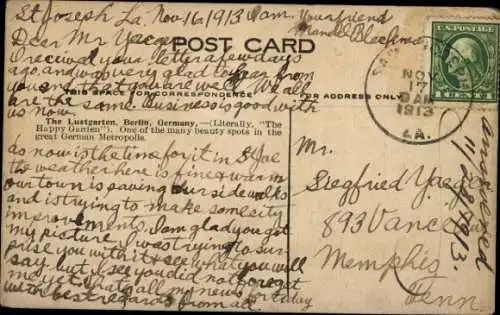 St Joseph La, Nov 16 1913 Sam. Your friend
Manuel
Dear Mr Yaeger
POST CARD
I received your letter a few days
ago. and was very glad to hear from
you and that you are well. We all
THIS SPACE FOR CORRESPONDENCE
FOR ADDRESS ONLY
are the same. Business is good with
us now.
The Lustgarten, Berlin, Germany.—(Literally, "The
Happy Garden"). One of the many beauty spots in the
great German Metropolis.
as now is the time for it in St Joe
the weather here is fine & warm
our town is paving our side walks
and is trying to make some city
improvements. I am glad you got
my picture. I was trying to sur-
prise you with it to see what you will
say but I see you did not forget
me yet. thats all my news for today
with best regards from all.
NOV
17
8 AM
1913
LA.
U.S. POSTAGE
Mr.
Siegfried Yaeger
893 Vance
Memphis
Tenn.
answered
11/23/13.